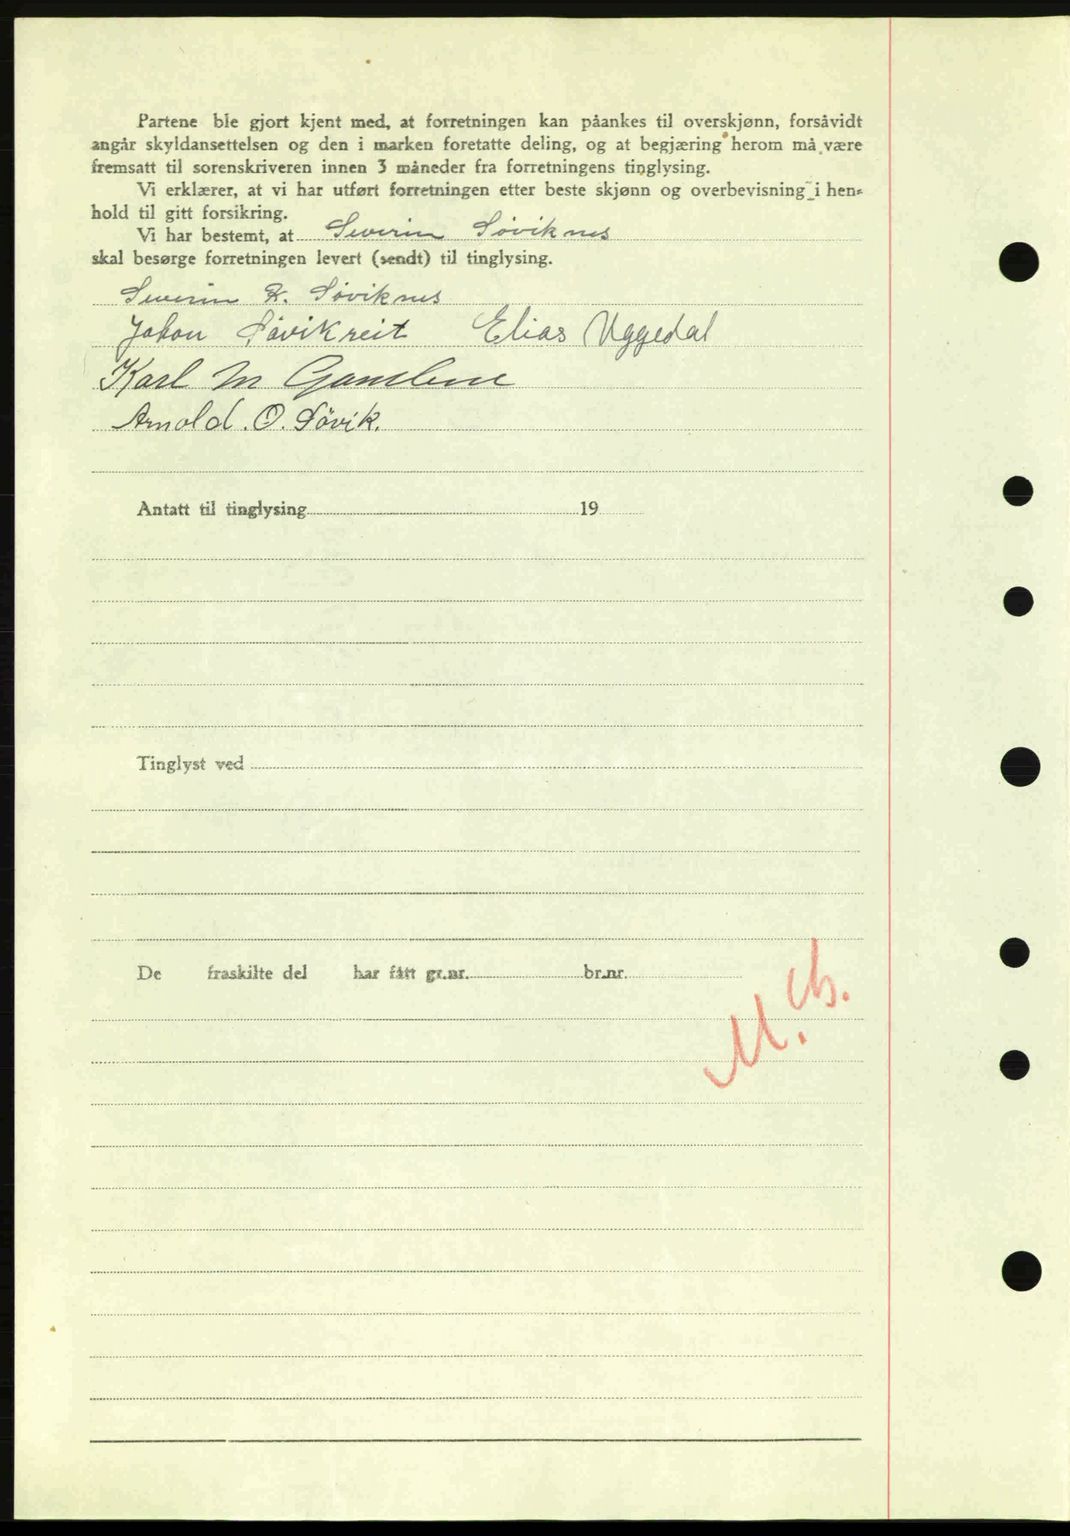 Partene ble gjort kjent med, at forretningen kan påankes til overskjønn, forsåvidt
angår skyldansettelsen og den i marken foretatte deling, og at begjæring herom må være
fremsatt til sorenskriveren innen 3 måneder fra forretningens tinglysing.
Vi erklærer, at vi har utført forretningen etter beste skjønn og overbevisning i hen-
hold til gitt forsikring.
Vi har bestemt, at Severin Søviknes
skal besørge forretningen levert (sendt) til tinglysing.
Severin K. Søviknes
Johan Søvikreit Elias Uggedal
Karl M Gamlem
Arnold. O. Søvik.
Antatt til tinglysing 19
Tinglyst ved
De fraskilte del har fått gr.nr. br.nr.
M.